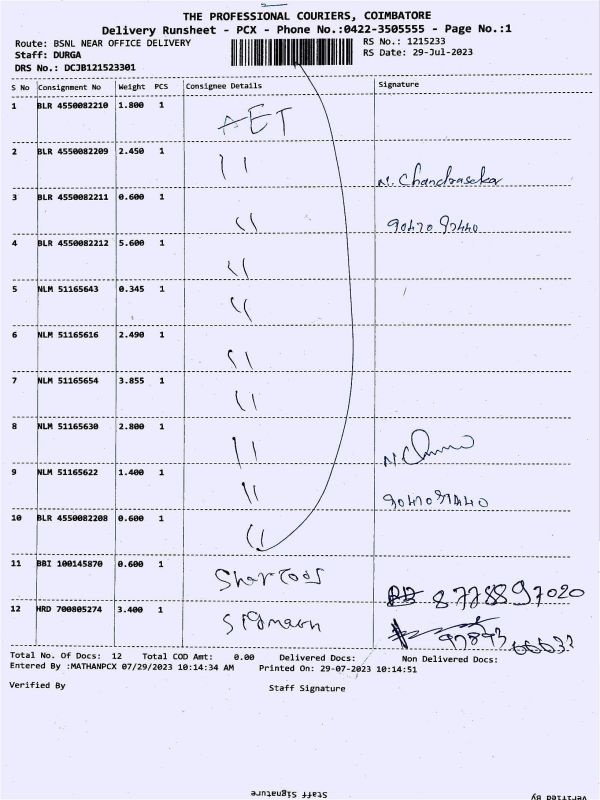 THE PROFESSIONAL COURIERS, COIMBATORE
Delivery Runsheet - PCX - Phone No.:0422-3505555 - Page No.:1
Route: BSNL NEAR OFFICE DELIVERY RS No.: 1215233
Staff: DURGA RS Date: 29-Jul-2023
DRS No.: DCJB121523301
S No Consignment No Weight PCS Consignee Details Signature
1 BLR 4550082210 1.800 1 AET
2 BLR 4550082209 2.450 1 " N. Chandrasekar
3 BLR 4550082211 0.600 1 " 90470 97440
4 BLR 4550082212 5.600 1 "
5 NLM 51165643 0.345 1 "
6 NLM 51165616 2.490 1 "
7 NLM 51165654 3.855 1 "
8 NLM 51165630 2.800 1 "
9 NLM 51165622 1.400 1 " 9047097440
10 BLR 4550082208 0.600 1 "
11 BBI 100145870 0.600 1
12 HRD 700805274 3.400 1
Total No. Of Docs: 12 Total COD Amt: 0.00 Delivered Docs: Non Delivered Docs:
Entered By :MATHANPCX 07/29/2023 10:14:34 AM Printed On: 29-07-2023 10:14:51
Verified By Staff Signature
Staff Signature Verified By